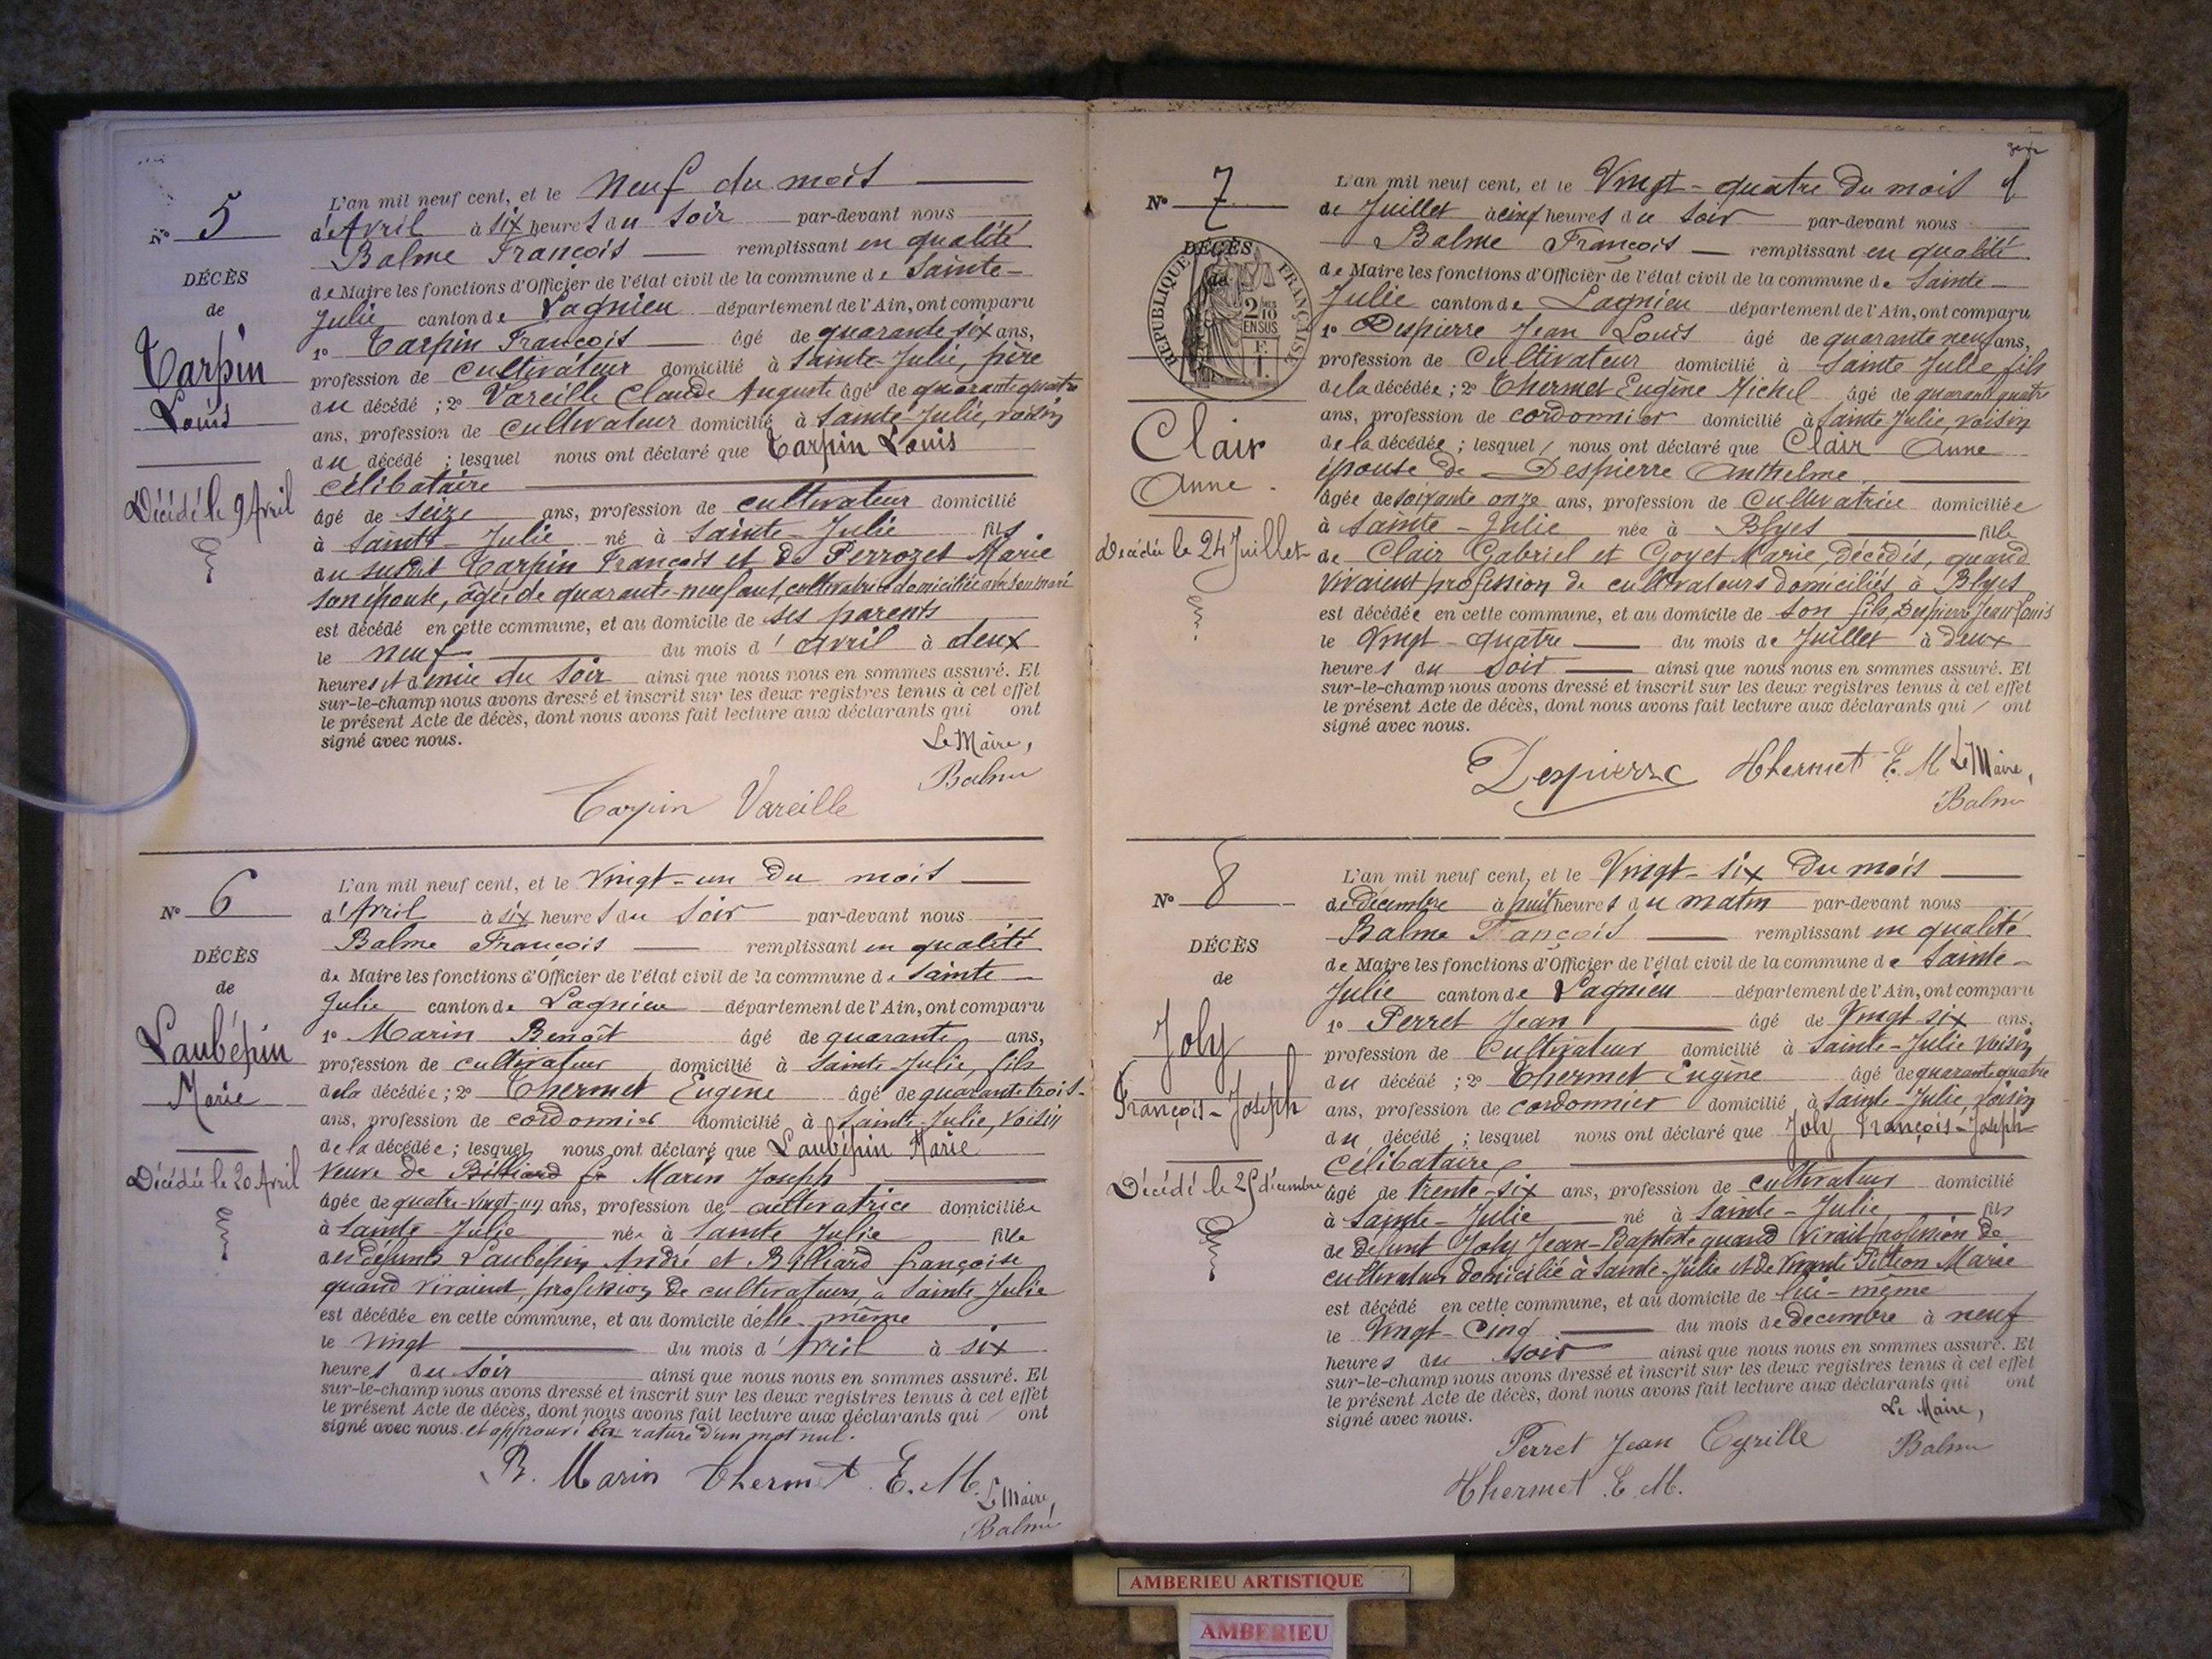 N° 5
DÉCÈS
de
Tarpin
Louis
Décédé le 9 Avril
L'an mil neuf cent, et le Neuf du mois
d'Avril à six heures du soir par-devant nous
Balme François remplissant en qualité
de Maire les fonctions d'Officier de l'état civil de la commune de Sainte-
Julie canton de Lagnieu département de l'Ain, ont comparu
1° Tarpin François âgé de quarante six ans,
profession de cultivateur domicilié à Sainte-Julie, père
du décédé ; 2° Vareille Claude Auguste âgé de quarante quatre
ans, profession de cultivateur domicilié à Sainte-Julie, voisin
du décédé ; lesquel nous ont déclaré que Tarpin Louis
célibataire
âgé de seize ans, profession de cultivateur domicilié
à Sainte-Julie né à Sainte-Julie fils
du susdit Tarpin François et de Perrozet Marie
son épouse, âgée de quarante-neuf ans, cultivatrice domiciliée avec son mari
est décédé en cette commune, et au domicile de ses parents
le neuf du mois d'avril à deux
heures et demie du soir ainsi que nous nous en sommes assuré. Et
sur-le-champ nous avons dressé et inscrit sur les deux registres tenus à cet effet
le présent Acte de décès, dont nous avons fait lecture aux déclarants qui ont
signé avec nous.
Le Maire,
Tarpin Vareille Balme
N° 6
DÉCÈS
de
Laubépin
Marie
Décédée le 20 Avril
L'an mil neuf cent, et le Vingt-un du mois
d'Avril à six heures du soir par-devant nous
Balme François remplissant en qualité
de Maire les fonctions d'Officier de l'état civil de la commune de Sainte
Julie canton de Lagnieu département de l'Ain, ont comparu
1° Marin Benoît âgé de quarante ans,
profession de cultivateur domicilié à Sainte-Julie, fils
de la décédée ; 2° Thermet Eugène âgé de quarante trois-
ans, profession de cordonnier domicilié à Sainte-Julie, voisin
de la décédée ; lesquel nous ont déclaré que Laubépin Marie
veuve de Billiard Marin Joseph
âgée de quatre-vingt-un ans, profession de cultivatrice domiciliée
à Sainte-Julie née à Sainte Julie fille
des défunts Laubépin André et Billiard Françoise
quand vivaient, profession de cultivateurs, à Sainte-Julie
est décédée en cette commune, et au domicile d'elle-même
le vingt du mois d'Avril à six
heures du soir ainsi que nous nous en sommes assuré. Et
sur-le-champ nous avons dressé et inscrit sur les deux registres tenus à cet effet
le présent Acte de décès, dont nous avons fait lecture aux déclarants qui ont
signé avec nous. et approuvé la rature d'un mot nul.
B. Marin Thermet E. M. Le Maire,
Balme
N° 7
DÉCÈS
RÉPUBLIQUE FRANÇAISE
2/10
EN SUS
Clair
Anne
Décédée le 24 Juillet
L'an mil neuf cent, et le Vingt-quatre du mois
de Juillet à cinq heures du soir par-devant nous
Balme François remplissant en qualité
de Maire les fonctions d'Officier de l'état civil de la commune de Sainte-
Julie canton de Lagnieu département de l'Ain, ont comparu
1° Despierre Jean Louis âgé de quarante neuf ans,
profession de Cultivateur domicilié à Sainte Julie fils
de la décédée ; 2° Thermet Eugène Michel âgé de quarante quatre
ans, profession de cordonnier domicilié à Sainte Julie, voisin
de la décédée ; lesquel nous ont déclaré que Clair Anne
épouse de Despierre Anthelme
âgée de soixante onze ans, profession de Cultivatrice domiciliée
à Sainte-Julie née à Blyes fille
de Clair Gabriel et Goyet Marie, décédés, quand
vivaient profession de cultivateurs domiciliés à Blyes
est décédée en cette commune, et au domicile de son fils, Despierre Jean Louis
le Vingt-quatre du mois de Juillet à deux
heures du soir ainsi que nous nous en sommes assuré. Et
sur-le-champ nous avons dressé et inscrit sur les deux registres tenus à cet effet
le présent Acte de décès, dont nous avons fait lecture aux déclarants qui ont
signé avec nous.
Despierre Thermet E. M. Le Maire,
Balme
N° 8
DÉCÈS
de
Joly
François-Joseph
Décédé le 25 décembre
L'an mil neuf cent, et le Vingt-six du mois
de décembre à huit heures du matin par-devant nous
Balme François remplissant en qualité
de Maire les fonctions d'Officier de l'état civil de la commune de Sainte-
Julie canton de Lagnieu département de l'Ain, ont comparu
1° Perret Jean âgé de Vingt six ans,
profession de Cultivateur domicilié à Sainte-Julie voisin
du décédé ; 2° Thermet Eugène âgé de quarante quatre
ans, profession de cordonnier domicilié à Sainte-Julie, voisin
du décédé ; lesquel nous ont déclaré que Joly François-Joseph
célibataire
âgé de trente-six ans, profession de cultivateur domicilié
à Sainte-Julie né à Sainte-Julie fils
de défunt Joly Jean-Baptiste quand vivait profession de
cultivateur domicilié à Sainte-Julie et de vivante Marie
est décédé en cette commune, et au domicile de lui-même
le Vingt-cinq du mois de décembre à neuf
heures du soir ainsi que nous nous en sommes assuré. Et
sur-le-champ nous avons dressé et inscrit sur les deux registres tenus à cet effet
le présent Acte de décès, dont nous avons fait lecture aux déclarants qui ont
signé avec nous.
Le Maire,
Perret Jean Cyrille Balme
Thermet E. M.
AMBERIEU ARTISTIQUE
AMBERIEU